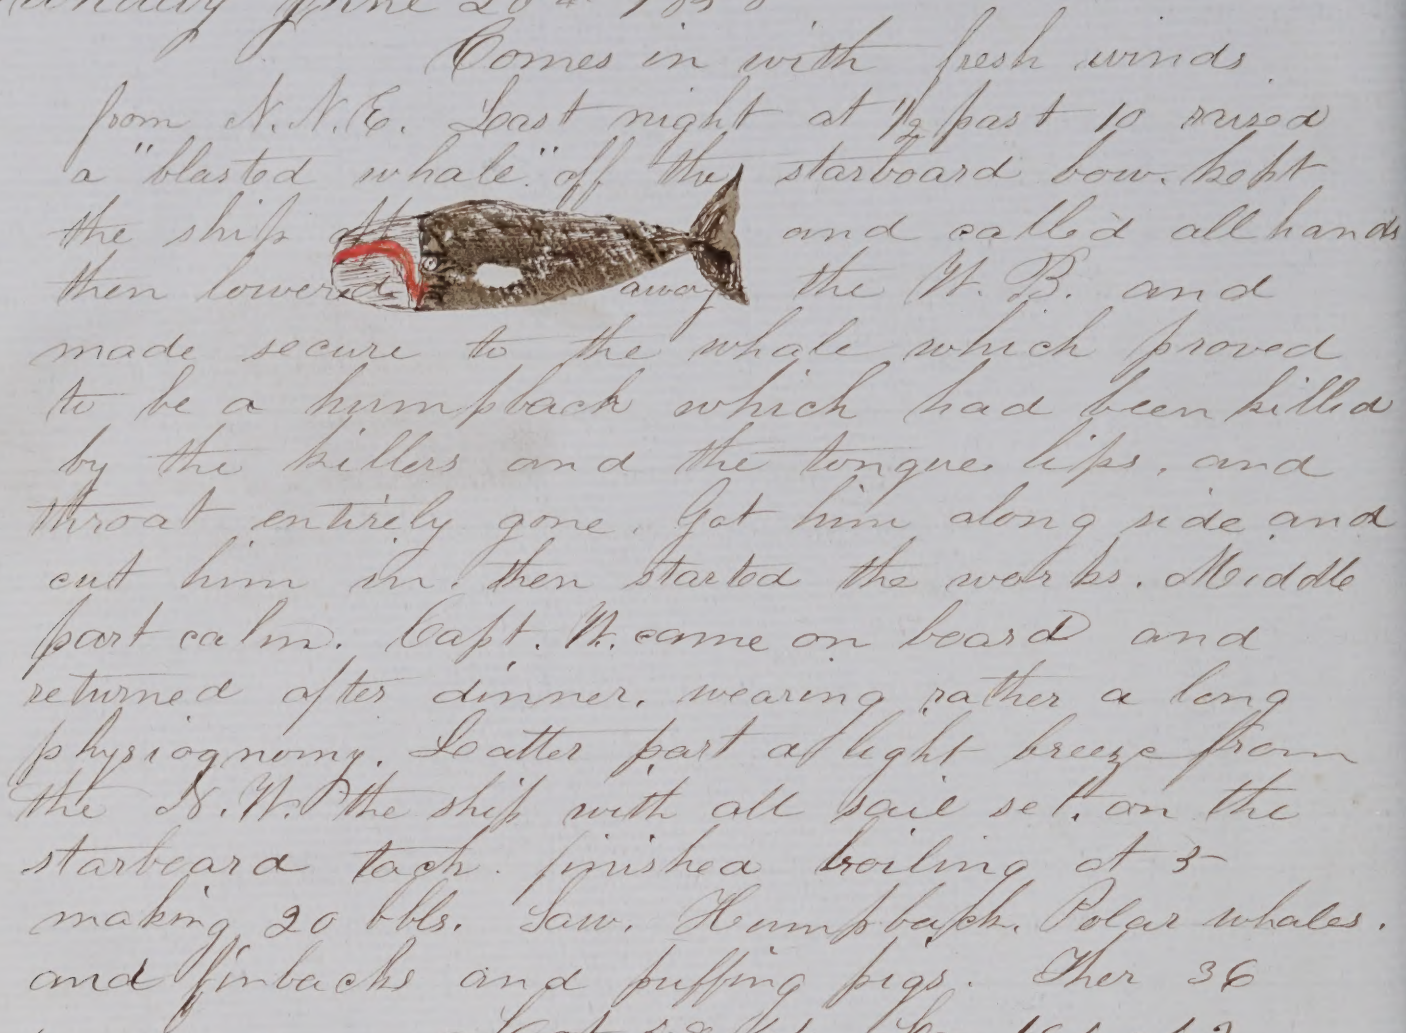 Sunday June 20th 1858
Comes in with fresh winds
from N.N.E. Last night at 1/2 past 10 raised
a "blasted whale" off the starboard bow. kept
the ship off and called all hands
then lowered away the W. B. and
made secure to the whale which proved
to be a humpback which had been killed
by the killers and the tongue, lips, and
throat entirely gone. Got him along side and
cut him in. then started the works. Middle
part calm. Capt. W. came on board and
returned after dinner, wearing rather a long
physiognomy. Latter part a light breeze from
the N.W. the ship with all sail set, on the
starboard tack. finished boiling at 5
making 20 bbls. Saw, Humpback, Polar whales.
and finbacks and puffing pigs. Ther 36